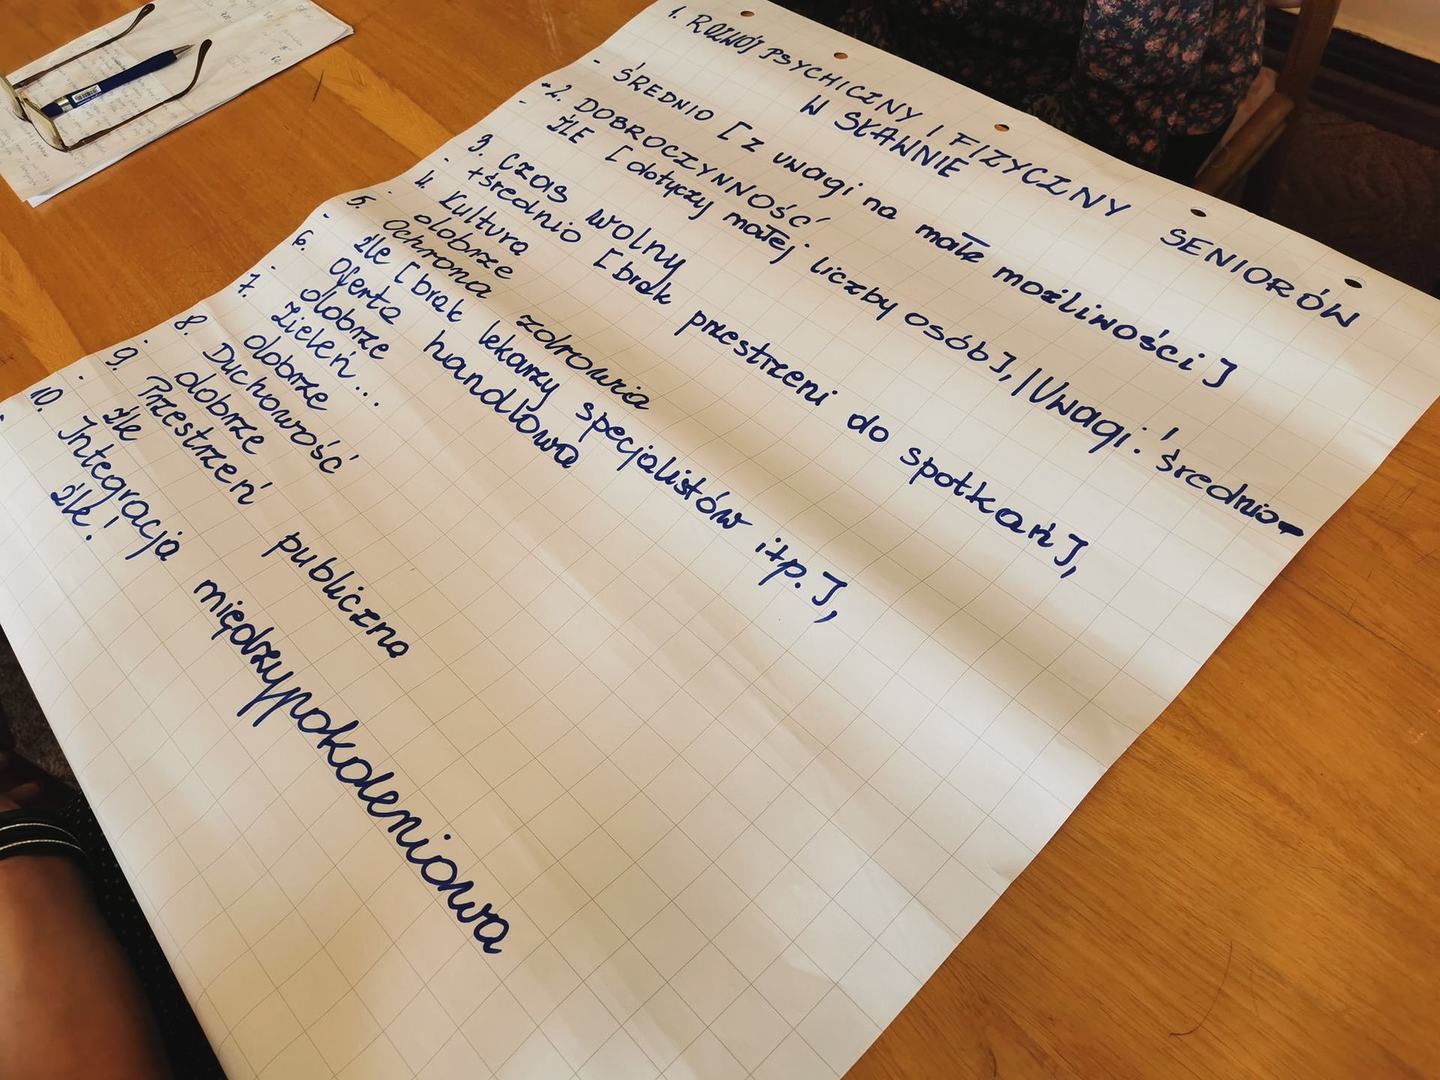 1. ROZWÓJ PSYCHICZNY I FIZYCZNY SENIORÓW
W SŁAWNIE
- ŚREDNIO [z uwagi na małe możliwości]
2. DOBROCZYNNOŚĆ
- ŹLE [dotyczy małej liczby osób], |Uwagi! średnio-
3. Czas wolny
- +średnio [brak przestrzeni do spotkań],
4. Kultura
- dobrze
5. Ochrona zdrowia
- źle [brak lekarzy specjalistów itp.],
6. Oferta handlowa
- dobrze
7. Zieleń...
- dobrze
8. Duchowość
- dobrze
9. Przestrzeń publiczna
- źle
10. Integracja międzypokoleniowa
- źle!